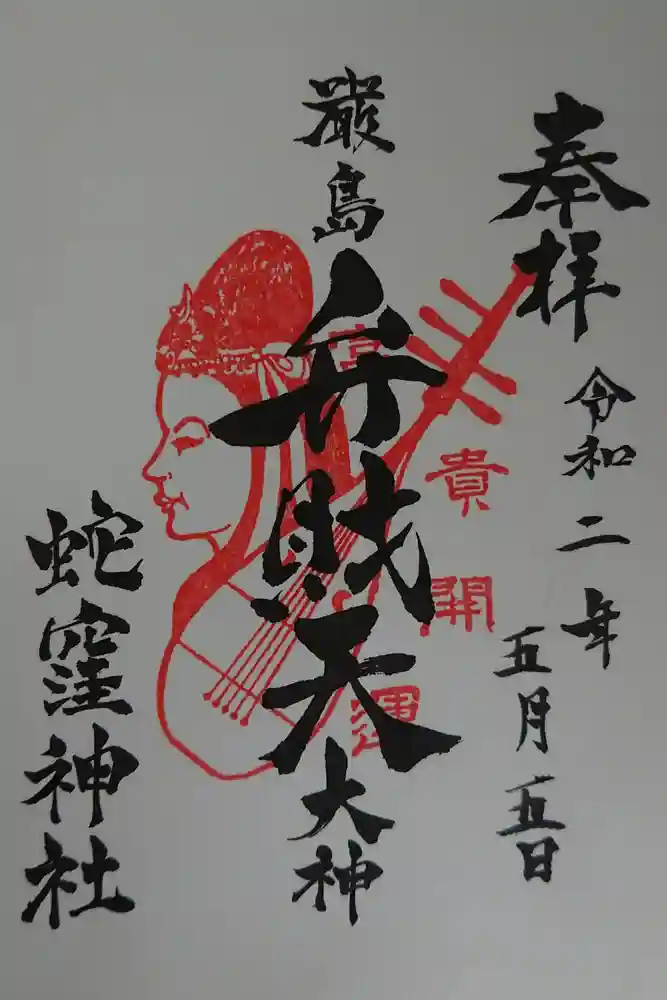 奉拝
令和二年
五月五日
厳島
弁財天
大神
富貴開運
蛇窪神社